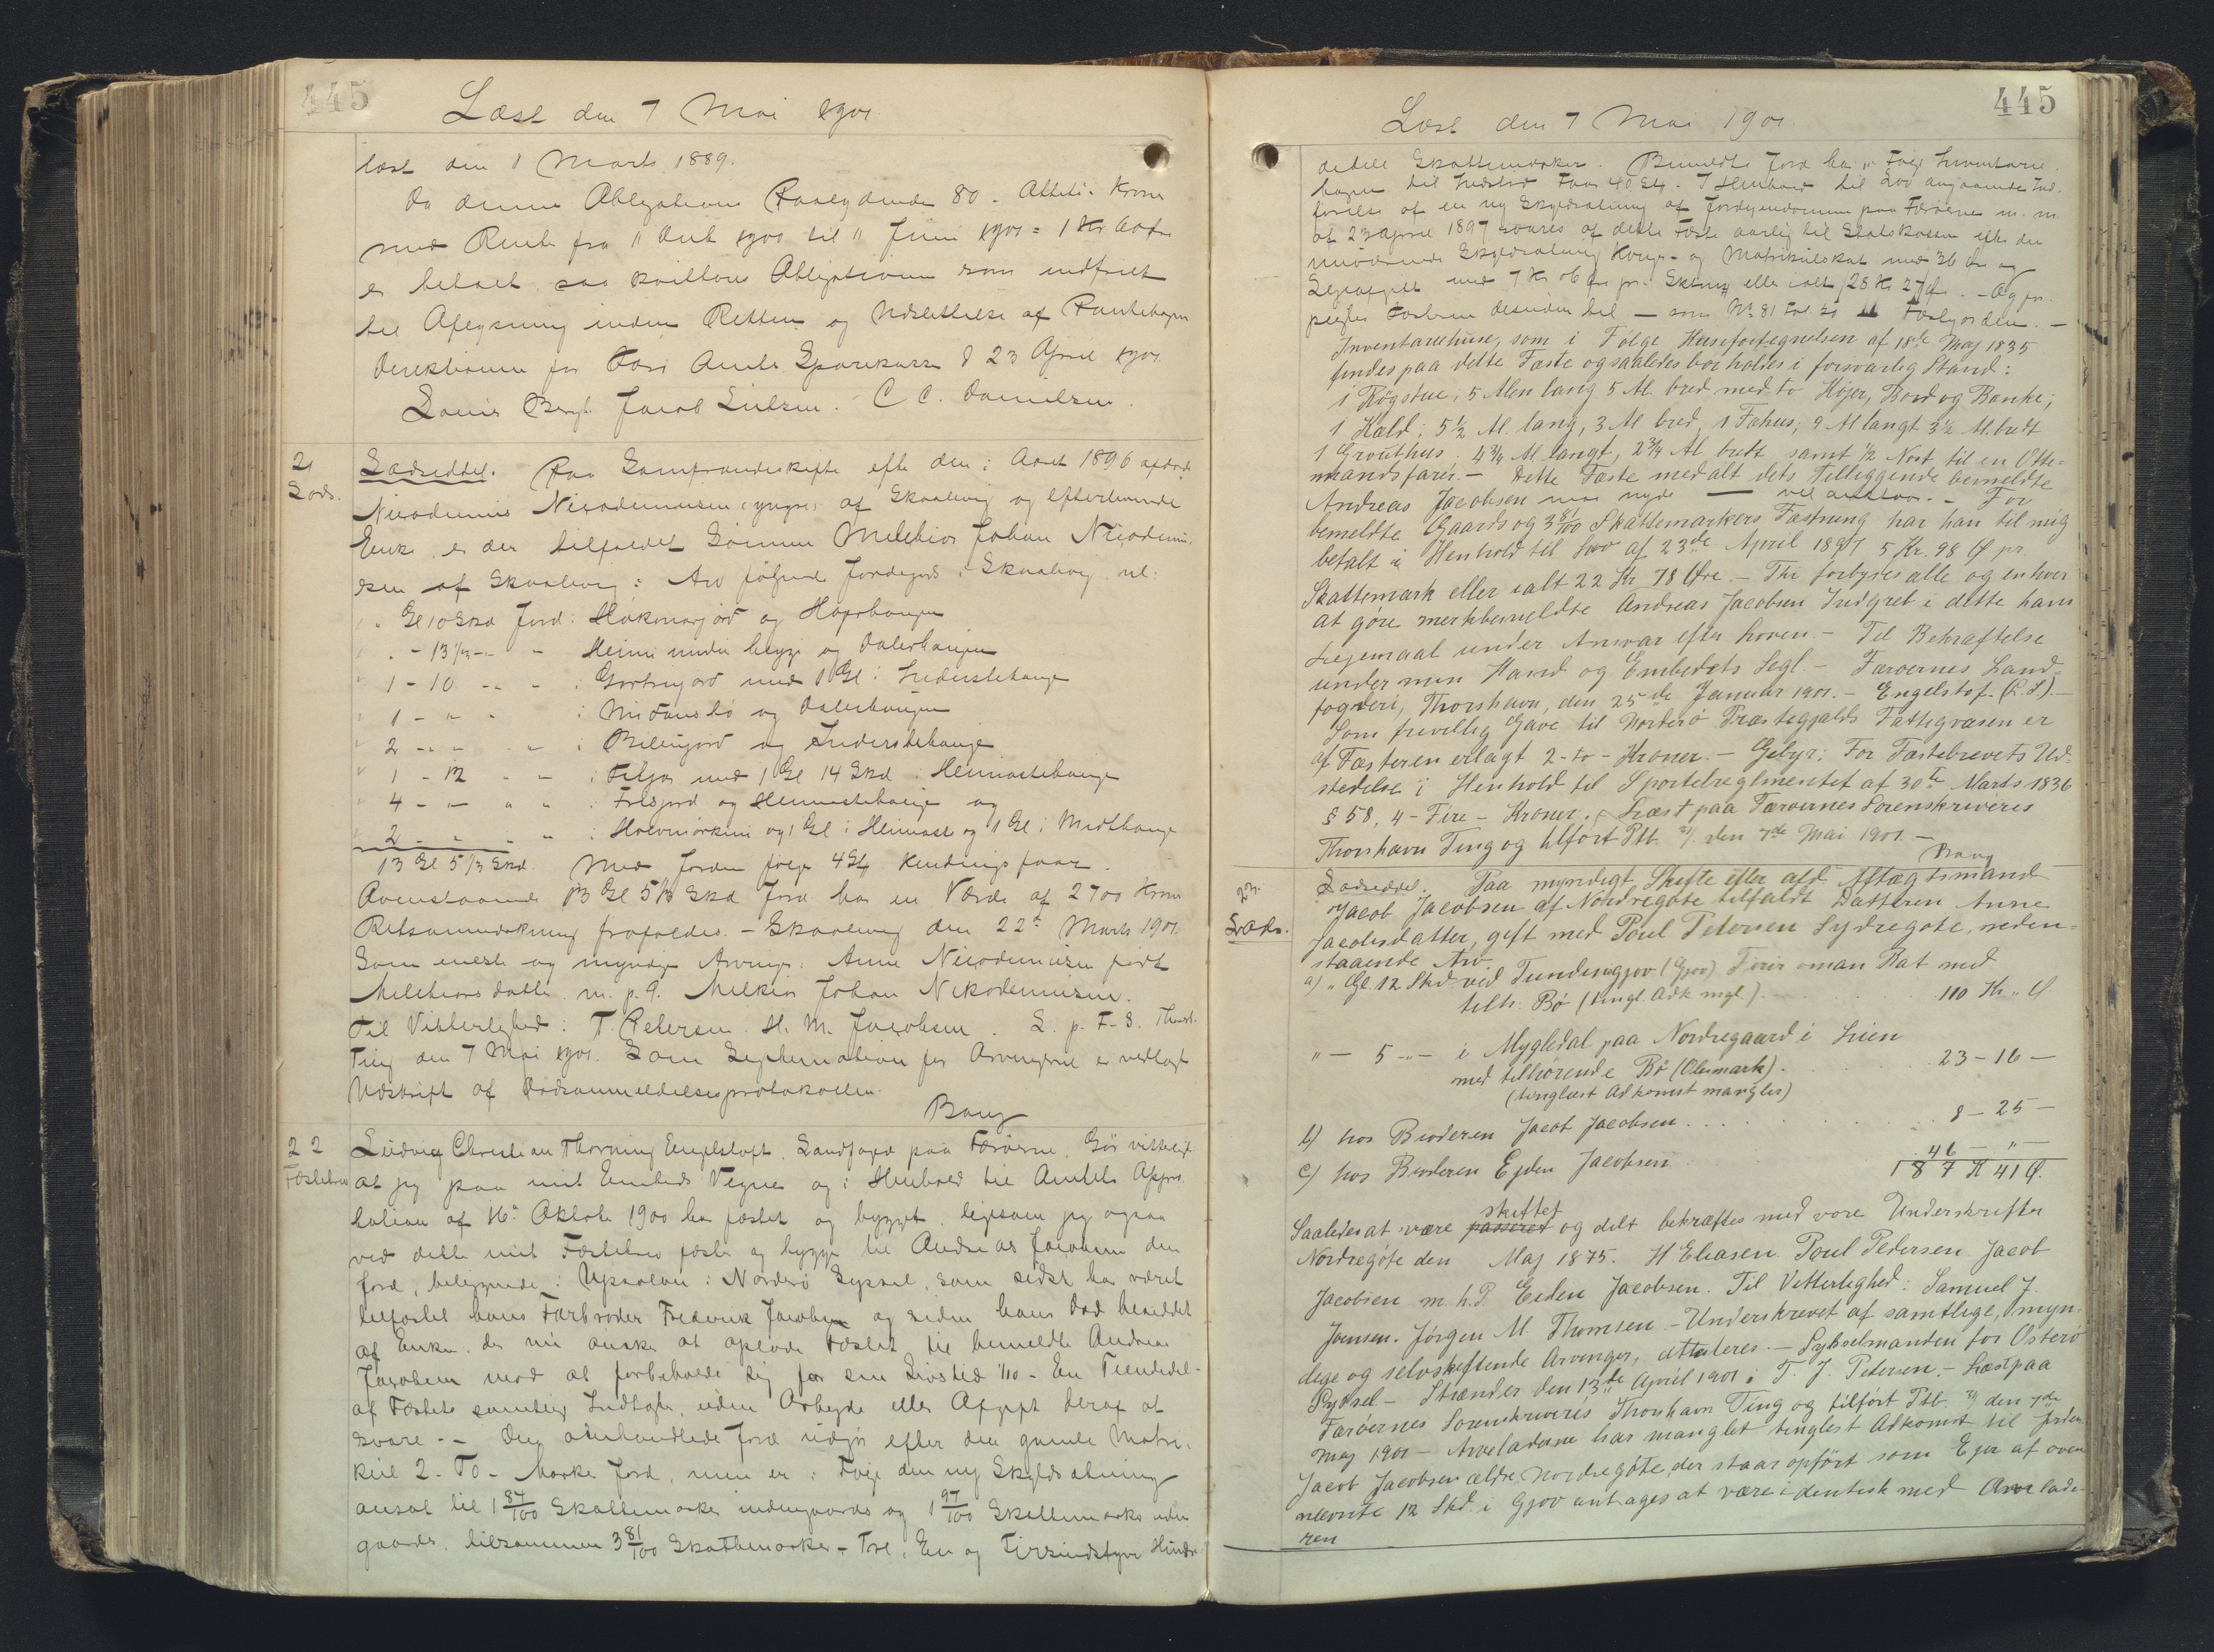 445
Læst den 7 Mai 1901
læst den 1 Marts 1889.
Da denne Obligations Paalydende 80 - Otteti - Kroner
med Rente fra 11 1900 til 11 Juni 1901 = 1 Kr
er betalt, saa kvitteres Obligationen som indfriet
til Aflysning inden Retten og Udslettelse af Pantebogen
Direktionen for Færø Amts Sparekasse d 23 April 1901.
Louis Bergh Jacob Lützen. C C. Danielsen.
21
Lods.
Lodseddel. Paa Samfrændeskifte efter den i Aaret 1896 afdøde
Nicodemus Nicodemussen (yngre) af Skaalevig og efterlevende
Enke er der tilfaldet Sønnen Melchior Johan Nicodemus-
sen af Skaalevig i Arv følgende Jordegods i Skaalevig nl:
" Gl 10 Skd Jord i Hákonarjørd og Høgrhaugen
" - 13 1/3 - " - Heima undir brygge og Dalerhaugen
1 - 10 - " - i med 1 Gl i Inderstehauge
1 - " - " i og Dalerhaugen
2 - " - " i og Inderstehauge
1 - 12 - " - i med 1 Gl 14 Skd i Heimastehauge
4 - " - " - i og Heimastehauge og
2 - " - " - i og 1 Gl i Heimast og 1 Gl i Midthauge
13 Gl 5 1/3 Skd. Med Jorden følger 4 Stk Kendingsfaar.
Ovenstaaende 13 Gl 5 1/3 Skd Jord har en Værdi af 2700 Kroner
Retsanmærkning frafaldes. - Skaalevig den 22de Marts 1901.
Som eneste og myndige Arvinger: Anne Nicodemussen født
Melchiorsdatter m. p. P. Melkior Johan Nikodemussen.
Til Vitterlighed: T. Petersen. H. M. Jacobsen. L. p. F. S. Thorsh.
Ting den 7 Mai 1901. Som Legitimation for Arvingerne er vedlagt
Udskrift af Dødsanmeldelsesprotokollen.
Bang
22
Fæstebrev
Ludvig Christian Thorning Engelstoft, Landfoged paa Færøerne, Gør vitterligt
at jeg paa mit Embeds Vegne og i Henhold til Amtets Appro-
bation af 16de Oktob 1900 har fæstet og bygget, ligesom jeg ogsaa
ved dette mit Fæstebrev fæster og bygger til Andreas Jacobsen den
Jord, beliggende i i Norderø Syssel, som sidst har været
tilfæstet hans Farbroder Frederik Jacobsen og siden hans Død besiddet
af Enken, der nu ønsker at oplade Fæstet til bemeldte Andreas
Jacobsen mod at forbeholde sig for sin Livstid 1/10 - En Tiendedel -
af Fæstets samtlige Indtægter, uden Arbejde eller Afgift deraf at
svare. - Den omhandlede Jord udgør efter den gamle Matri-
kul 2 - To - Marker Jord, men er i Følge den ny Skyldsætning
ansat til 1 84/100 Skattemarker indengaards og 1 97/100 Skattemarks uden
gaards, tilsammen 3 81/100 Skattemarker - Tre, En og Firsindstyve Hundre-
445
Læst den 7 Mai 1901.
dedele Skattemarker. Bemeldte Jord har i Følge Inventarie
bogen til Indstød Faar 40 Stk. - I Henhold til Lov angaaende Ind-
førelse af en ny Skyldsætning af Jordejendomme paa Færøerne m. m.
af 23 April 1897 svares af dette Fæste aarlig til Statskassen efter den
nuværende Skyldsætning Konge- og Matrikulskat med 36 Øre og
Lejeafgift med 7 Kr 06 Øre pr. Sktmrk eller ialt 28 Kr 27 Øre. - Og for-
pligtes Fæsteren desuden til - som No 81 Fol. Fæstejorden. -
Inventariehuse, som i Følge Husefortegnelsen af 18de Maj 1835
findes paa dette Fæste og saaledes bør holdes i forsvarlig Stand:
1 Røgstue, 5 Alen lang 5 Al. bred med to Køjer, Bord og Bænke;
1 Hæld; 5 1/2 Al. lang, 3 Al bred, 1 Fæhus; 9 Al langt 3 1/2 Al. bredt
1 Grouthus. 4 3/4 Al langt, 2 3/4 Al bredt, samt 1/2 Nøst til en Otte-
mandsfarer. - Dette Fæste med alt dets Tilliggende bemeldte
Andreas Jacobsen maa nyde — . - For
bemeldte Gaards og 3 81/100 Skattemarkers Fæstning har han til mig
betalt i Henhold til Lov af 23de April 1897 5 Kr. 98 Ø pr.
Skattemark eller ialt 22 Kr 78 Øre. - Thi forbydes alle og enhver
at gøre merkbemeldte Andreas Jacobsen Indgreb i dette hans
Lejemaal under Ansvar efter Loven. - Til Bekræftelse
under min Haand og Embedets Segl. - Færøernes Land-
fogderi, Thorshavn, den 25de Januar 1901. - Engelstof. (L. S). -
Som frivillig Gave til Norderø Præstegjælds Fattigvæsen er
af Fæsteren erlagt 2 - to - Kroner. - Gebyr: For Fæstebrevets Ud-
stedelse i Henhold til Sportelreglementet af 30te Marts 1836
§ 58, 4 - Fire - Kroner. - Læst paa Færøernes Sorenskriveris
Thorshavn Ting og tilført Ptb. den 7de Mai 1901. -
Bang
23.
Lods.
Lodseddel. Paa myndigt Skifte efter afd Aftægtsmand
Jacob Jacobsen af Nordregøte tilfaldt Datteren Anne
Jacobsdatter, gift med Poul Petersen Sydregøte, neden-
staaende Arv
a) " Gl. 12 Skd ved Tundurigjov (Gjov) Firir oman Hat med
tilh. Bø (tingl. Adk mgl.) . . . . 110 Kr " Ø.
" - 5 - " - i Mygledal paa Nordregaard i Lien
med tilhørende Bø (Olasmark) . . . 23 - 16 -
(tinglæst Adkomst mangler)
b) hos Broderen Jacob Jacobsen . . . . 8 - 25 -
c) hos Broderen Ejden Jacobsen 46 - " -
187 K 41 Ø.
skiftet
Saaledes at være passeret og delt bekræftes med vore Underskrifter
Nordregøte den Maj 1875. H Eliasen. Poul Pedersen. Jacob
Jacobsen m. h. P. Eiden Jacobsen. Til Vitterlighed: Samuel J.
Joensen. Jørgen M. Thomsen - Underskrevet af samtlige, myn-
dige og selvskiftende Arvinger, attesteres. - Sysselmanden for Østerø
Syssel - Strænder den 13de April 1901. T. J. Petersen. - Læst paa
Færøernes Sorenskriveris Thorshavn Ting og tilført Ptb. den 7de
Maj 1901 - Arveladeren har manglet tinglæst Adkomst til Jorden.
Jacob Jacobsen ældre, Nordregøte, der staar opført som Ejer af oven
nævnte 12 Skd. i Gjov antages at være identisk med Arvelade-
ren